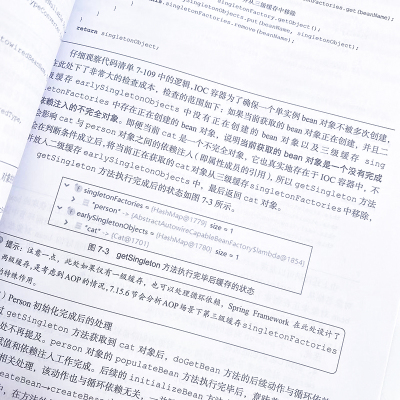 singletonFactory.getObject();
earlySingletonObjects.put(beanName, singletonObject);
this.singletonFactories.remove(beanName);
return singletonObject;
仔细观察代码清单 7-109 中的逻辑，IOC 容器为了确保一个单实例 bean 对象不被多次创建，
在此处下了非常大的检查成本，检查的范围如下：如果当前获取的 bean 对象正在创建，并且二
级缓存 earlySingletonObjects 中没有正在创建的 bean 对象以及三级缓存 sing
letonFactories 中存在正在创建的 bean 对象，说明当前获取的 bean 对象是一个没有完成
依赖注入的不完全对象。即便当前 cat 是一个不完全对象，它也真实地存在于 IOC 容器中，不
会影响 cat 与 person 对象之间的依赖注入（即属性成员的引用），所以 getSingleton 方法
会在判断条件成立后，将当前正在获取的 cat 对象从三级缓存 singletonFactories 中移除，
并放入二级缓存 earlySingletonObjects 中，最后返回 cat 对象。
getSingleton 方法执行完成后的状态如图 7-3 所示。
singletonFactories = {HashMap@1779} size = 1
"person" -> {AbstractAutowireCapableBeanFactory$lambda@1854}
earlySingletonObjects = {HashMap@1780} size = 1
"cat" -> {Cat@1701}
图 7-3 getSingleton 方法执行完毕后缓存的状态
提示：注意一点，此处如果仅有一级缓存，也可以处理循环依赖，Spring Framework 在此处设计了
两级缓存，是考虑到 AOP 的情况，7.15.6 节会分析 AOP 场景下第三级缓存 singletonFactories
的特殊作用。
) Person 初始化完成后的处理
getSingleton 方法获取到 cat 对象后，doGetBean 方法的后续动作与循环依
处不再提及。person 对象的 populateBean 方法执行完毕后，意味着
赋值和依赖注入工作完成。后续的 initializeBean 方法
相关处理，该动作也与循环依赖无关，一